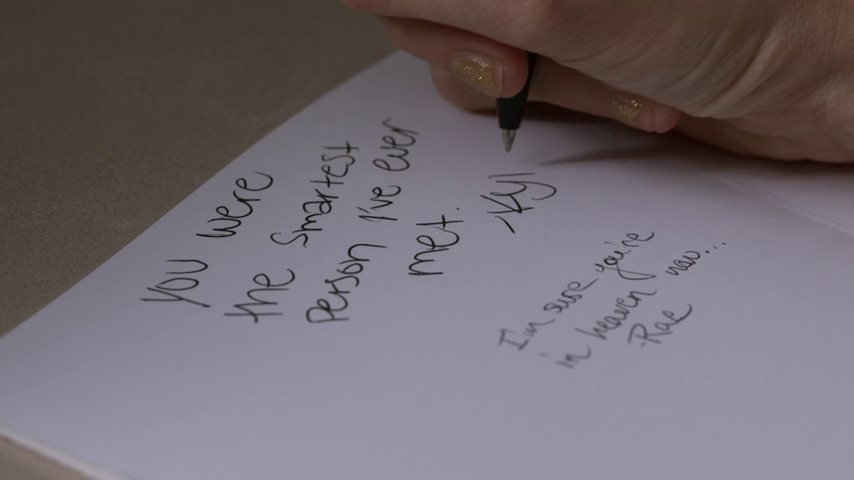 you were
the smartest
person I've ever
met.
-Kyl
I'm sure you're
in heaven now...
-Rae